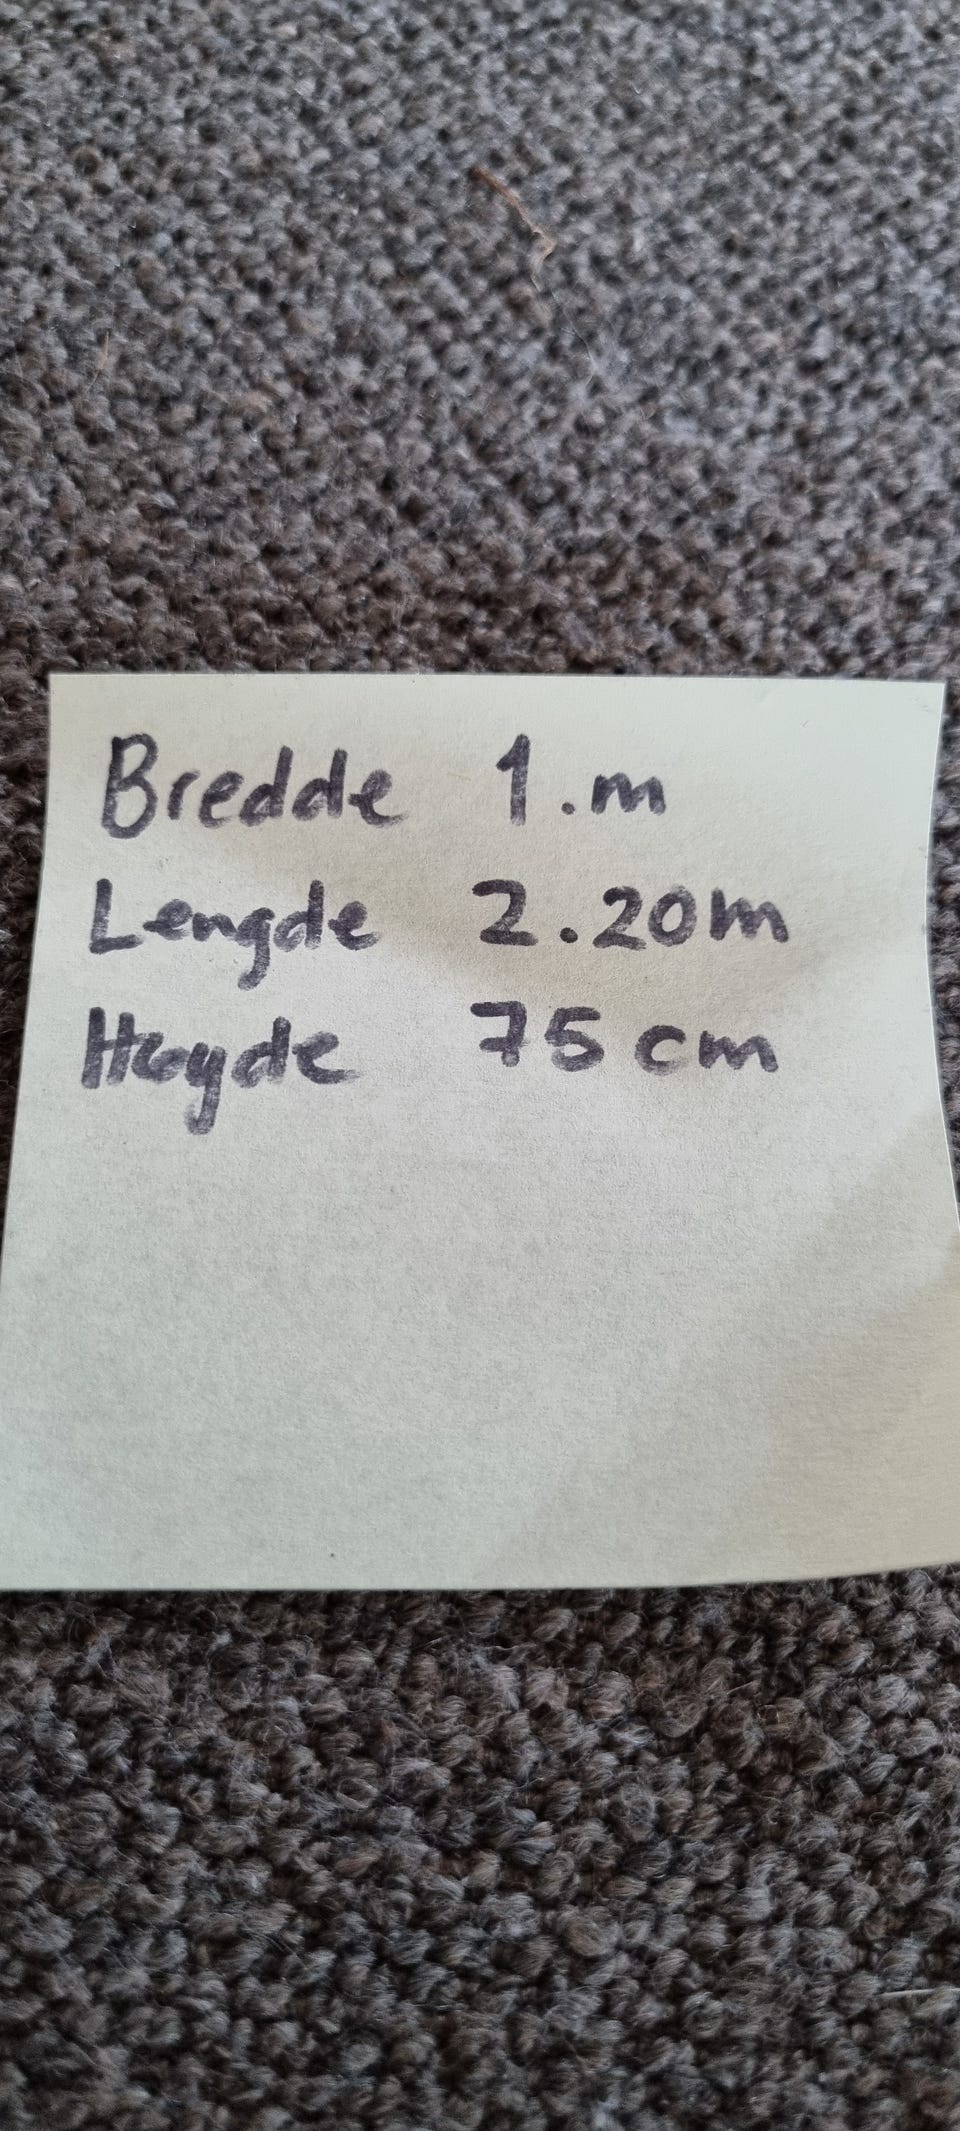 Bredde 1.m
Lengde 2.20m
Høyde 75 cm